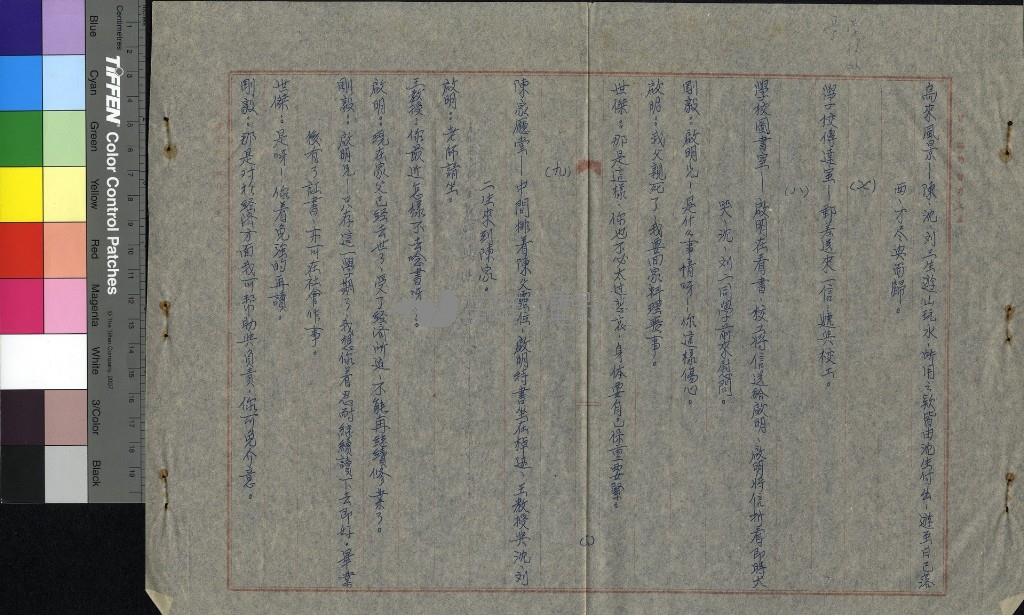 烏來風景——陳、沈、刘三生遊山玩水、所用之款皆由沈生付出、遊至日已落
西、才尽興而歸。
(七)
學校傳達室——郵差送來一信、遞與校工。
(八)
學校圖書室——啟明在看書、校工將信送給啟明、啟明將信拆看即時大
哭、沈、刘一同學前來慰問。
剛毅：啟明兄！是什么事情呀！你這樣傷心。
啟明：我父親死了！我要回家料理喪事。
世傑：那是這樣、你也不必太过悲哀、身体要自己保重要緊。
(九)
陳家廳堂——中間排着陳父靈位、啟明持書坐在棹边、王教授與沈、刘
二生來到陳家。
啟明：老師請坐。
王教授：你最近怎樣不去唸書呀！
啟明：現在家父已經去世了、受了經濟所迫、不能再継續修業了。
剛毅：啟明兄！只存這一學期了、我想你着忍耐継續讀下去即好、畢業
後有了証書、亦可在社會作事。
世傑：是呀！你着勉強的再讀。
剛毅：那是对於經濟方面我可帮助與負責、你可免介意。
Centimetres
TIFFEN Color Control Patches
© The Tiffen Company, 2007
Blue
Cyan
Green
Yellow
Red
Magenta
White
3/Color
Black